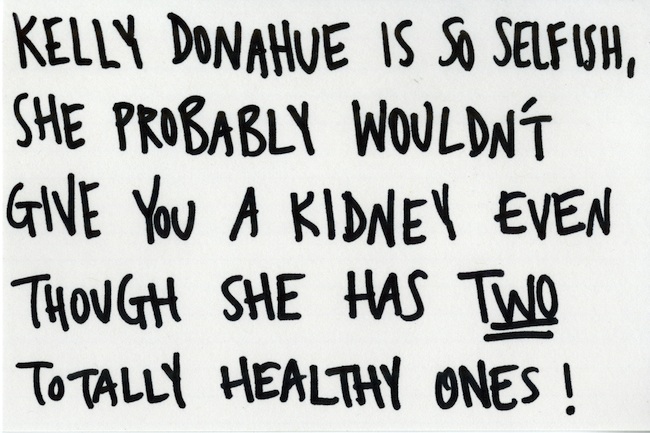 KELLY DONAHUE IS SO SELFISH,
SHE PROBABLY WOULDN'T
GIVE YOU A KIDNEY EVEN
THOUGH SHE HAS TWO
TOTALLY HEALTHY ONES!